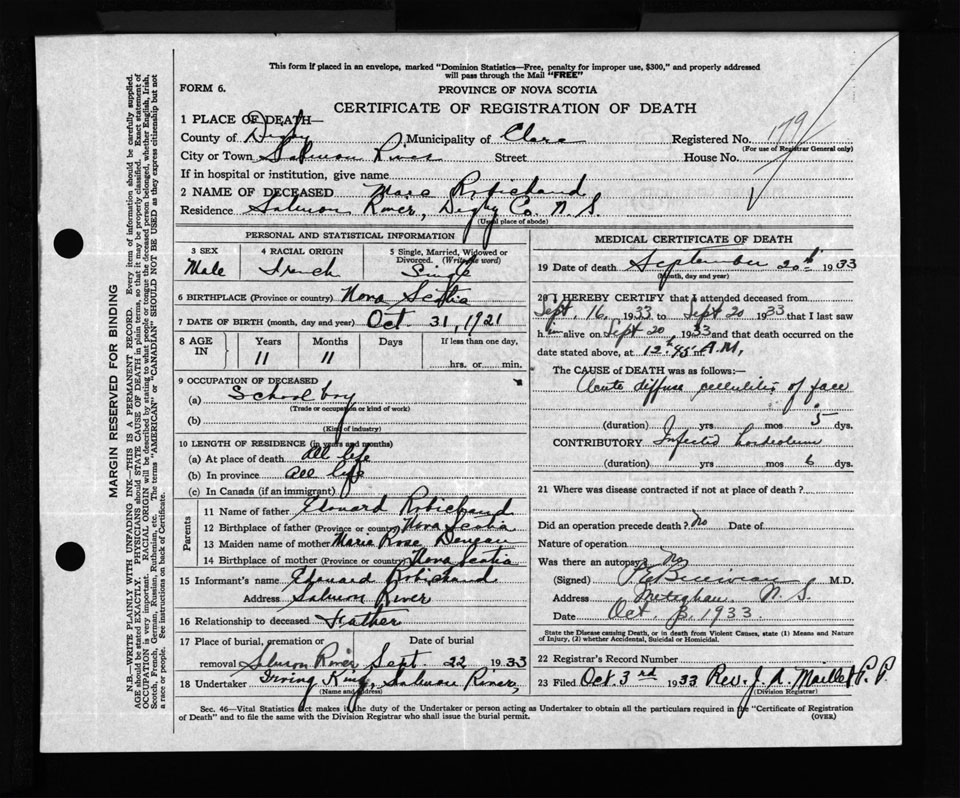 This form if placed in an envelope, marked "Dominion Statistics—Free, penalty for improper use, $300," and properly addressed
will pass through the Mail "FREE"
FORM 6.
PROVINCE OF NOVA SCOTIA
CERTIFICATE OF REGISTRATION OF DEATH
1 PLACE OF DEATH—
County of Digby Municipality of Clare Registered No. 179
(For use of Registrar General only)
City or Town Salmon River Street House No.
If in hospital or institution, give name
2 NAME OF DECEASED Marc Robichaud
Residence Salmon River, Digby Co. N S
(Usual place of abode)
PERSONAL AND STATISTICAL INFORMATION
3 SEX 4 RACIAL ORIGIN 5 Single, Married, Widowed or
Divorced. (Write the word)
Male French Single
6 BIRTHPLACE (Province or country) Nova Scotia
7 DATE OF BIRTH (month, day and year) Oct. 31, 1921
8 AGE IN Years Months Days If less than one day,
11 11 hrs. or min.
9 OCCUPATION OF DECEASED
(a) School boy
(Trade or occupation or kind of work)
(b)
(Kind of industry)
10 LENGTH OF RESIDENCE (in years and months)
(a) At place of death all life
(b) In province all life
(c) In Canada (if an immigrant)
Parents
11 Name of father Edouard Robichaud
12 Birthplace of father (Province or country) Nova Scotia
13 Maiden name of mother Marie Rose
14 Birthplace of mother (Province or country) Nova Scotia
15 Informant's name Edouard Robichaud
Address Salmon River
16 Relationship to deceased Father
17 Place of burial, cremation or Date of burial
removal Salmon River Sept. 22 1933
18 Undertaker Irving King, Salmon River,
(Name and address)
MEDICAL CERTIFICATE OF DEATH
19 Date of death September 20th 1933
(Month, day and year)
20 I HEREBY CERTIFY that I attended deceased from
Sept. 16, 1933 to Sept 20 1933 that I last saw
him alive on Sept 20, 1933 and that death occurred on the
date stated above, at 12.45 A.M.
The CAUSE of DEATH was as follows:—
Acute diffuse cellulitis of face
(duration) yrs mos 5 dys.
CONTRIBUTORY Infected hordeolum
(duration) yrs mos 6 dys.
21 Where was disease contracted if not at place of death?
Did an operation precede death? No Date of
Nature of operation
Was there an autopsy? No
(Signed) M.D.
Address Meteghan N. S.
Date Oct 3, 1933.
State the Disease causing Death, or in death from Violent Causes, state (1) Means and Nature
of Injury, (2) whether Accidental, Suicidal or Homicidal.
22 Registrar's Record Number
23 Filed Oct 3rd 1933 Rev. J. A. Maillet P. P.
(Division Registrar)
Sec. 46—Vital Statistics Act makes it the duty of the Undertaker or person acting as Undertaker to obtain all the particulars required in the "Certificate of Registration
of Death" and to file the same with the Division Registrar who shall issue the burial permit.
(OVER)
MARGIN RESERVED FOR BINDING
N.B.—WRITE PLAINLY WITH UNFADING INK—THIS IS A PERMANENT RECORD. Every item of information should be carefully supplied.
AGE should be stated EXACTLY. PHYSICIANS should STATE CAUSE OF DEATH in plain terms, so that it may be properly classified. Exact statement of
OCCUPATION is very important. RACIAL ORIGIN will be described by stating to what people or tongue the deceased person belonged, whether English, Irish,
Scotch, French, German, Russian, Ruthenian, etc. The terms "AMERICAN" or "CANADIAN" SHOULD NOT BE USED as they express citizenship but not
a race or people. See instructions on back of Certificate.